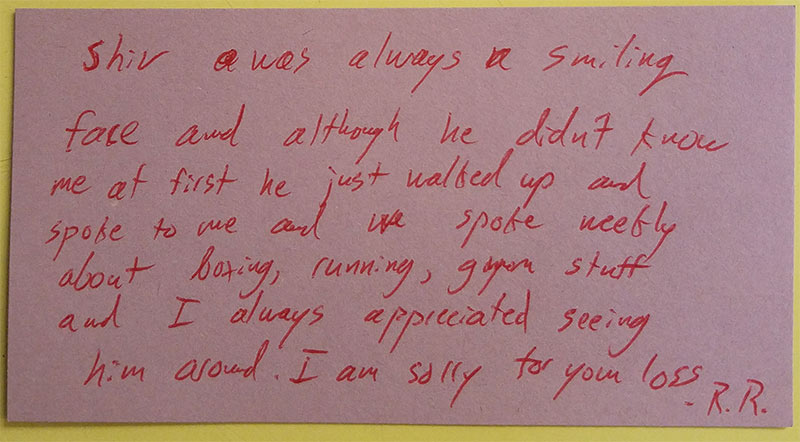 Shiv was always a smiling
face and although he didn't know
me at first he just walked up and
spoke to me and we spoke weekly
about boxing, running, gym stuff
and I always appreciated seeing
him around. I am sorry for your loss
- R.R.